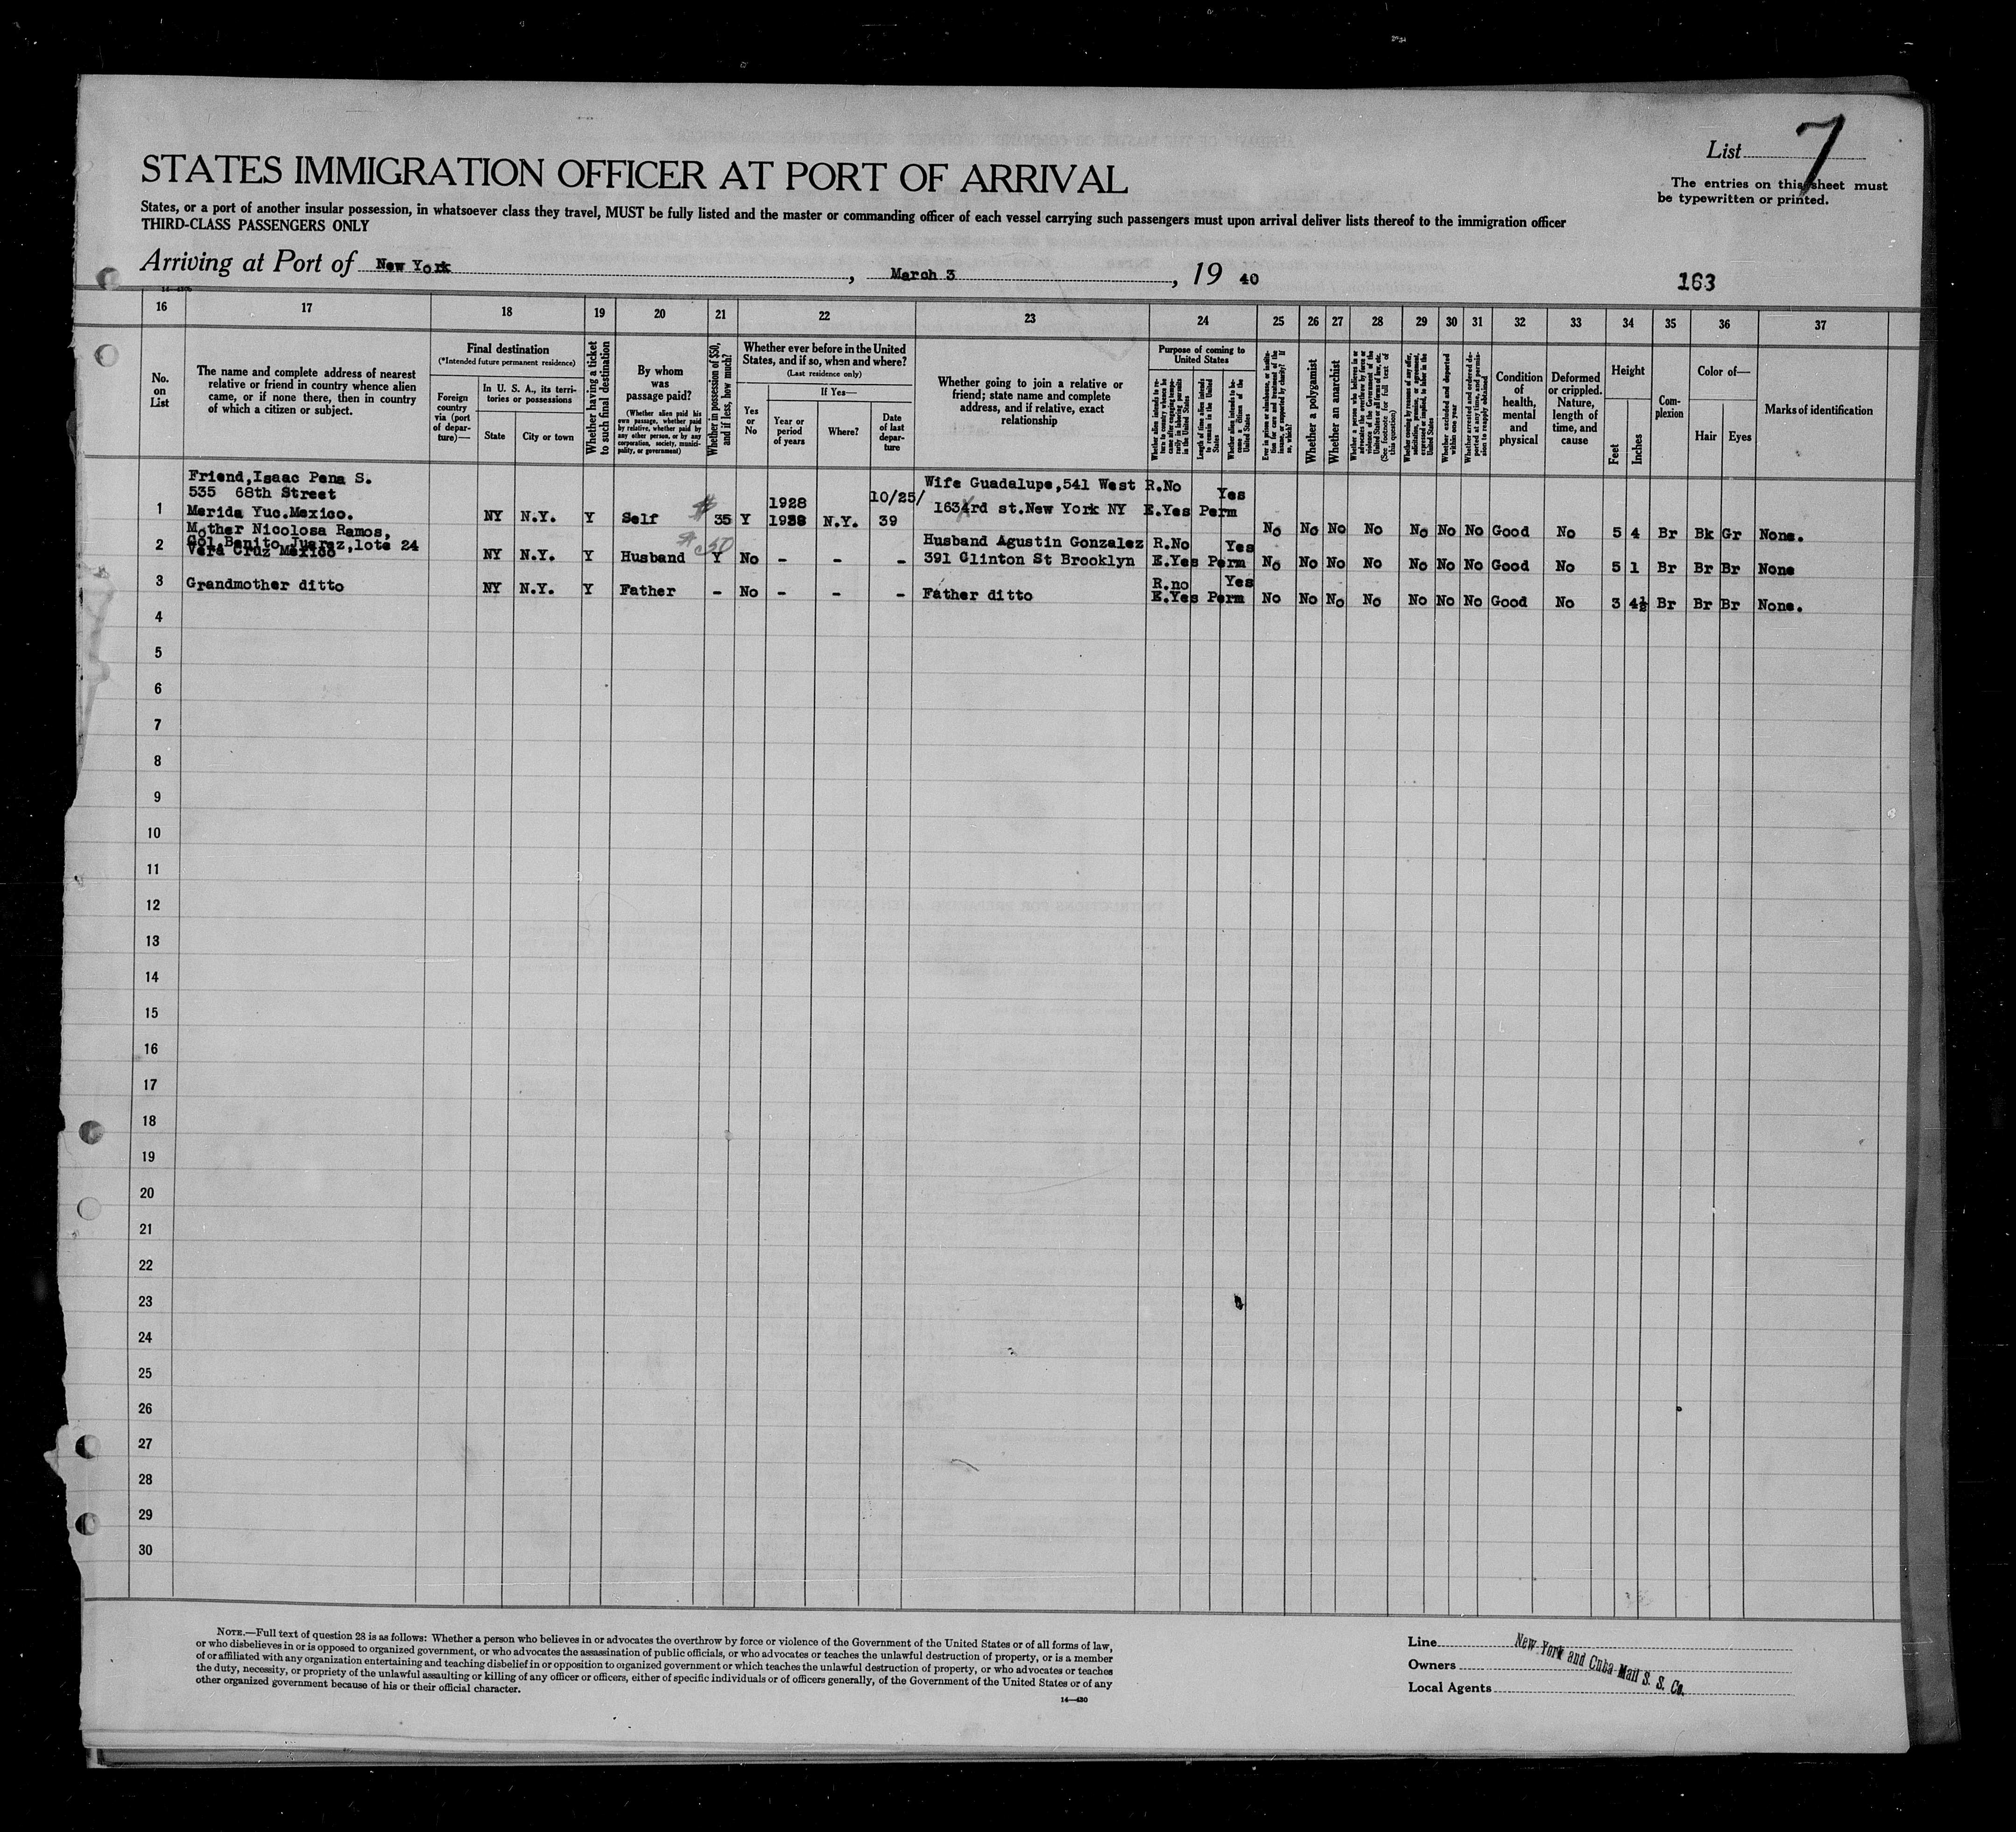 List 7
STATES IMMIGRATION OFFICER AT PORT OF ARRIVAL
The entries on this sheet must
be typewritten or printed.
States, or a port of another insular possession, in whatsoever class they travel, MUST be fully listed and the master or commanding officer of each vessel carrying such passengers must upon arrival deliver lists thereof to the immigration officer
THIRD-CLASS PASSENGERS ONLY
Arriving at Port of New York, March 3, 19 40
163
16 17 18 19 20 21 22 23 24 25 26 27 28 29 30 31 32 33 34 35 36 37
No. on List
The name and complete address of nearest
relative or friend in country whence alien
came, or if none there, then in country
of which a citizen or subject.
Final destination
(*Intended future permanent residence)
Foreign country via (port of departure)—
In U. S. A., its territories or possessions
State
City or town
Whether having a ticket to such final destination
By whom was passage paid?
(Whether alien paid his own passage, whether paid by relative, whether paid by any other person, or by any corporation, society, municipality, or government)
Whether in possession of $50, and if less, how much?
Whether ever before in the United States, and if so, when and where?
(Last residence only)
Yes or No
If Yes—
Year or period of years
Where?
Date of last departure
Whether going to join a relative or
friend; state name and complete
address, and if relative, exact
relationship
Purpose of coming to United States
Whether alien intends to return to country whence he came after engaging temporarily in laboring pursuits in the United States
Length of time alien intends to remain in the United States
Whether alien intends to become a citizen of the United States
Ever in prison or almshouse, or institution for care and treatment of the insane, or supported by charity? If so, which?
Whether a polygamist
Whether an anarchist
Whether a person who believes in or advocates the overthrow by force or violence of the Government of the United States or all forms of law, etc. (See footnote for full text of this question)
Whether coming by reason of any offer, solicitation, promise, or agreement, expressed or implied, to labor in the United States
Whether excluded and deported within one year
Whether arrested and ordered deported at any time, and permission to reapply obtained
Condition of health, mental and physical
Deformed or crippled. Nature, length of time, and cause
Height
Feet
Inches
Complexion
Color of—
Hair
Eyes
Marks of identification
1 Friend, Isaac Pena S.
535 68th Street
Merida Yuc.Mexico.
NY N.Y. Y Self $ 35 Y 1928 1938 N.Y. 10/25/ 39
Wife Guadalupe, 541 West
163rd st.New York NY
R.No E.Yes Perm Yes No No No No No No No Good No 5 4 Br Bk Gr None.
2 Mother Nicolosa Ramos,
Col.Benito Juarez, lote 24
Vera Cruz Mexico
NY N.Y. Y Husband $50 Y No - - -
Husband Agustin Gonzalez
391 Clinton St Brooklyn
R.No E.Yes Perm Yes No No No No No No No Good No 5 1 Br Br Br None
3 Grandmother ditto NY N.Y. Y Father - No - - - Father ditto R.no E.Yes Perm Yes No No No No No No No Good No 3 4½ Br Br Br None.
4
5
6
7
8
9
10
11
12
13
14
15
16
17
18
19
20
21
22
23
24
25
26
27
28
29
30
NOTE.—Full text of question 28 is as follows: Whether a person who believes in or advocates the overthrow by force or violence of the Government of the United States or of all forms of law,
or who disbelieves in or is opposed to organized government, or who advocates the assassination of public officials, or who advocates or teaches the unlawful destruction of property, or is a member
of or affiliated with any organization entertaining and teaching disbelief in or opposition to organized government or which teaches the unlawful destruction of property, or who advocates or teaches
the duty, necessity, or propriety of the unlawful assaulting or killing of any officer or officers, either of specific individuals or of officers generally, of the Government of the United States or of any
other organized government because of his or their official character.
14—430
Line
Owners
Local Agents
New York and Cuba Mail S. S. Co.